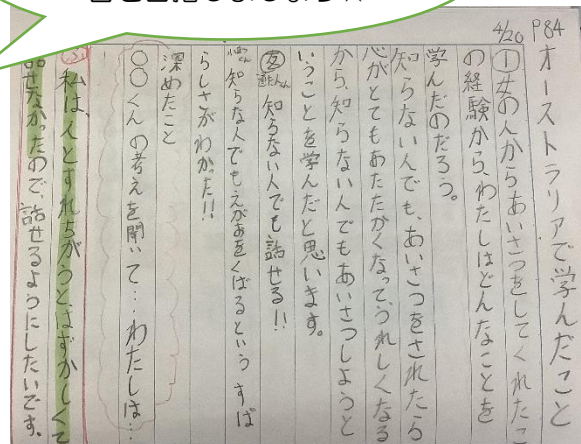 P84
オーストラリアで学んだこと
4/20
①女の人からあいさつをしてくれたこ
の経験から、わたしはどんなことを
学んだのだろう。
知らない人でも、あいさつをされたら
心がとてもあたたかくなって、うれしくなる
から、知らない人でもあいさつしようと
いうことを学んだと思います。
友 知らない人でも話せる!!
知らな人でもえがおをくばるという すば
らしさがわかった!!
深めたこと
○○くんの考えを聞いて…わたしは…
私は、人とすれちがうと、はずかしくて
話せなかったので、話せるようにしたいです。